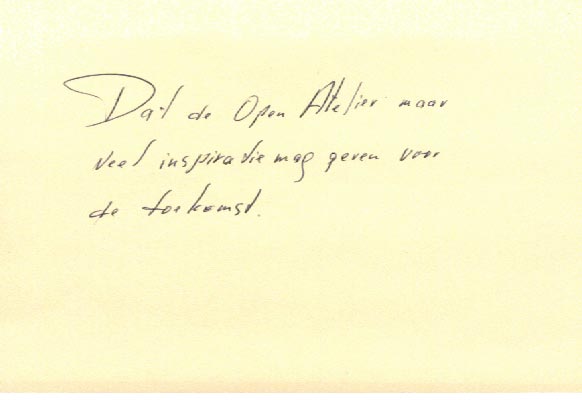 Dat de Open Atelier maar
veel inspiratie mag geven voor
de toekomst.